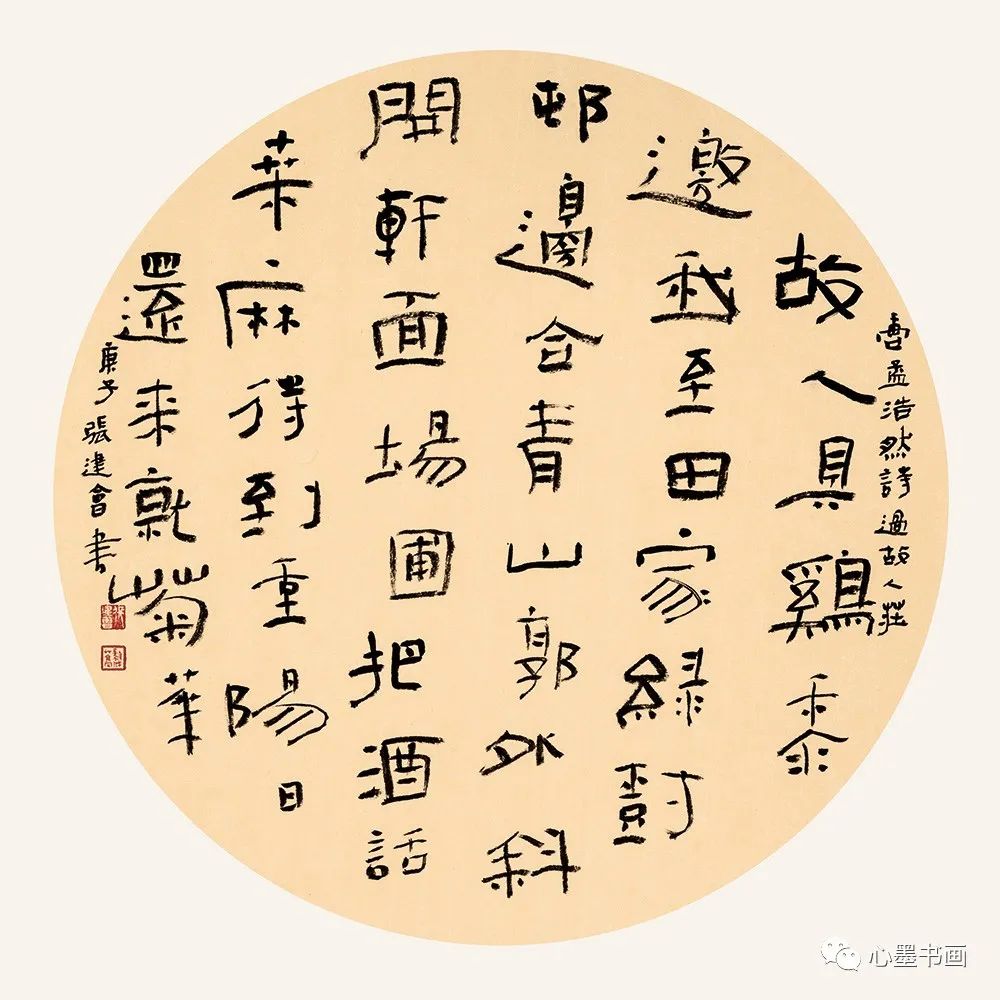 孟浩然詩過故人莊
故人具鷄黍
邀我至田家緑樹
邨邊合青山郭外斜
開軒面場圃把酒話
桒麻待到重陽日
還来就菊華
庚子張建會書
心墨书画